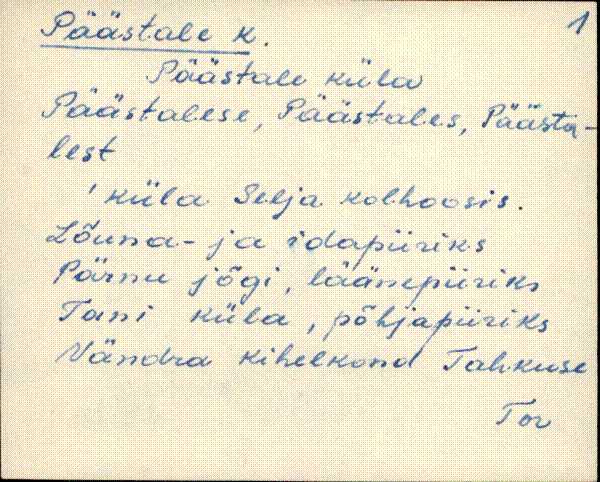 Päästale k.
1
Päästale küla
Päästalese, Päästales, Päästa-
lest
' küla Selja kolhoosis.
Lõuna- ja idapiiriks
Pärnu jõgi, läänepiiriks
Tani küla, põhjapiiriks
Vändra kihelkond Tahkuse
Tor